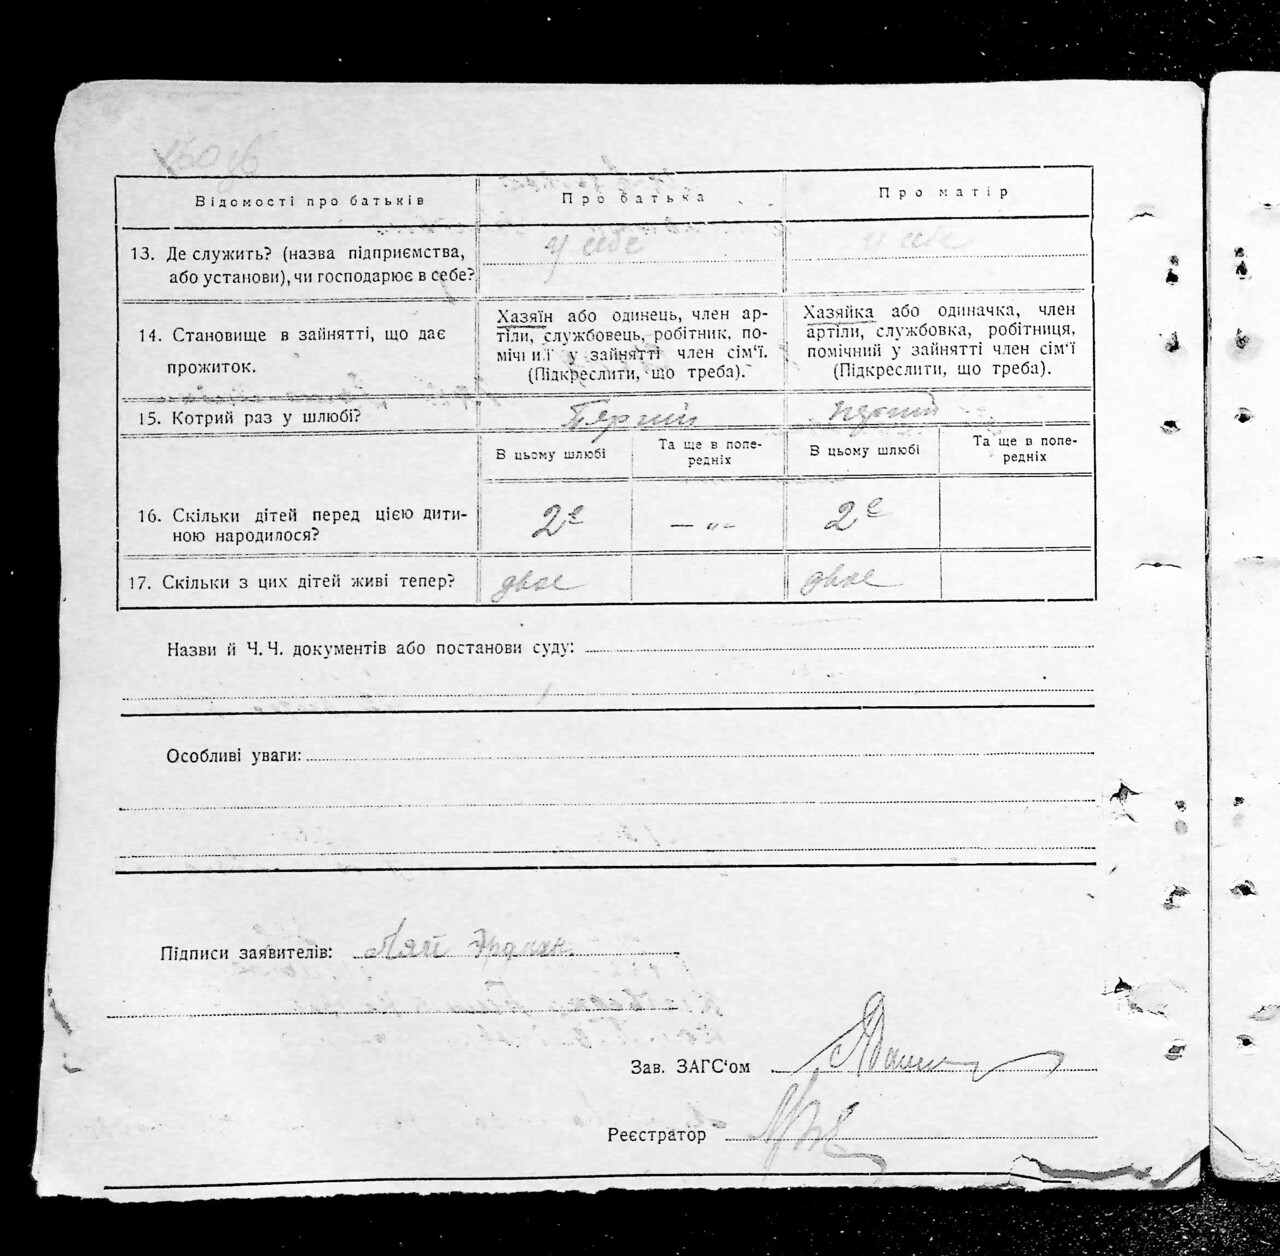 Відомості про батьків
Про батька
Про матір
13. Де служить? (назва підприємства,
або установи), чи господарює в себе?
у себе
у себе
14. Становище в зайнятті, що дає
прожиток.
Хазяїн або одинець, член ар-
тіли, службовець, робітник, по-
мічний у зайнятті член сім'ї.
(Підкреслити, що треба).
Хазяйка або одиначка, член
артіли, службовка, робітниця,
помічний у зайнятті член сім'ї
(Підкреслити, що треба).
15. Котрий раз у шлюбі?
В цьому шлюбі
Та ще в попе-
редніх
В цьому шлюбі
Та ще в попе-
редніх
16. Скільки дітей перед цією дити-
ною народилося?
2є
— „ —
2є
17. Скільки з цих дітей живі тепер?
двоє
двоє
Назви й Ч. Ч. документів або постанови суду:
Особливі уваги:
Підписи заявителів:
Зав. ЗАГС'ом
Реєстратор